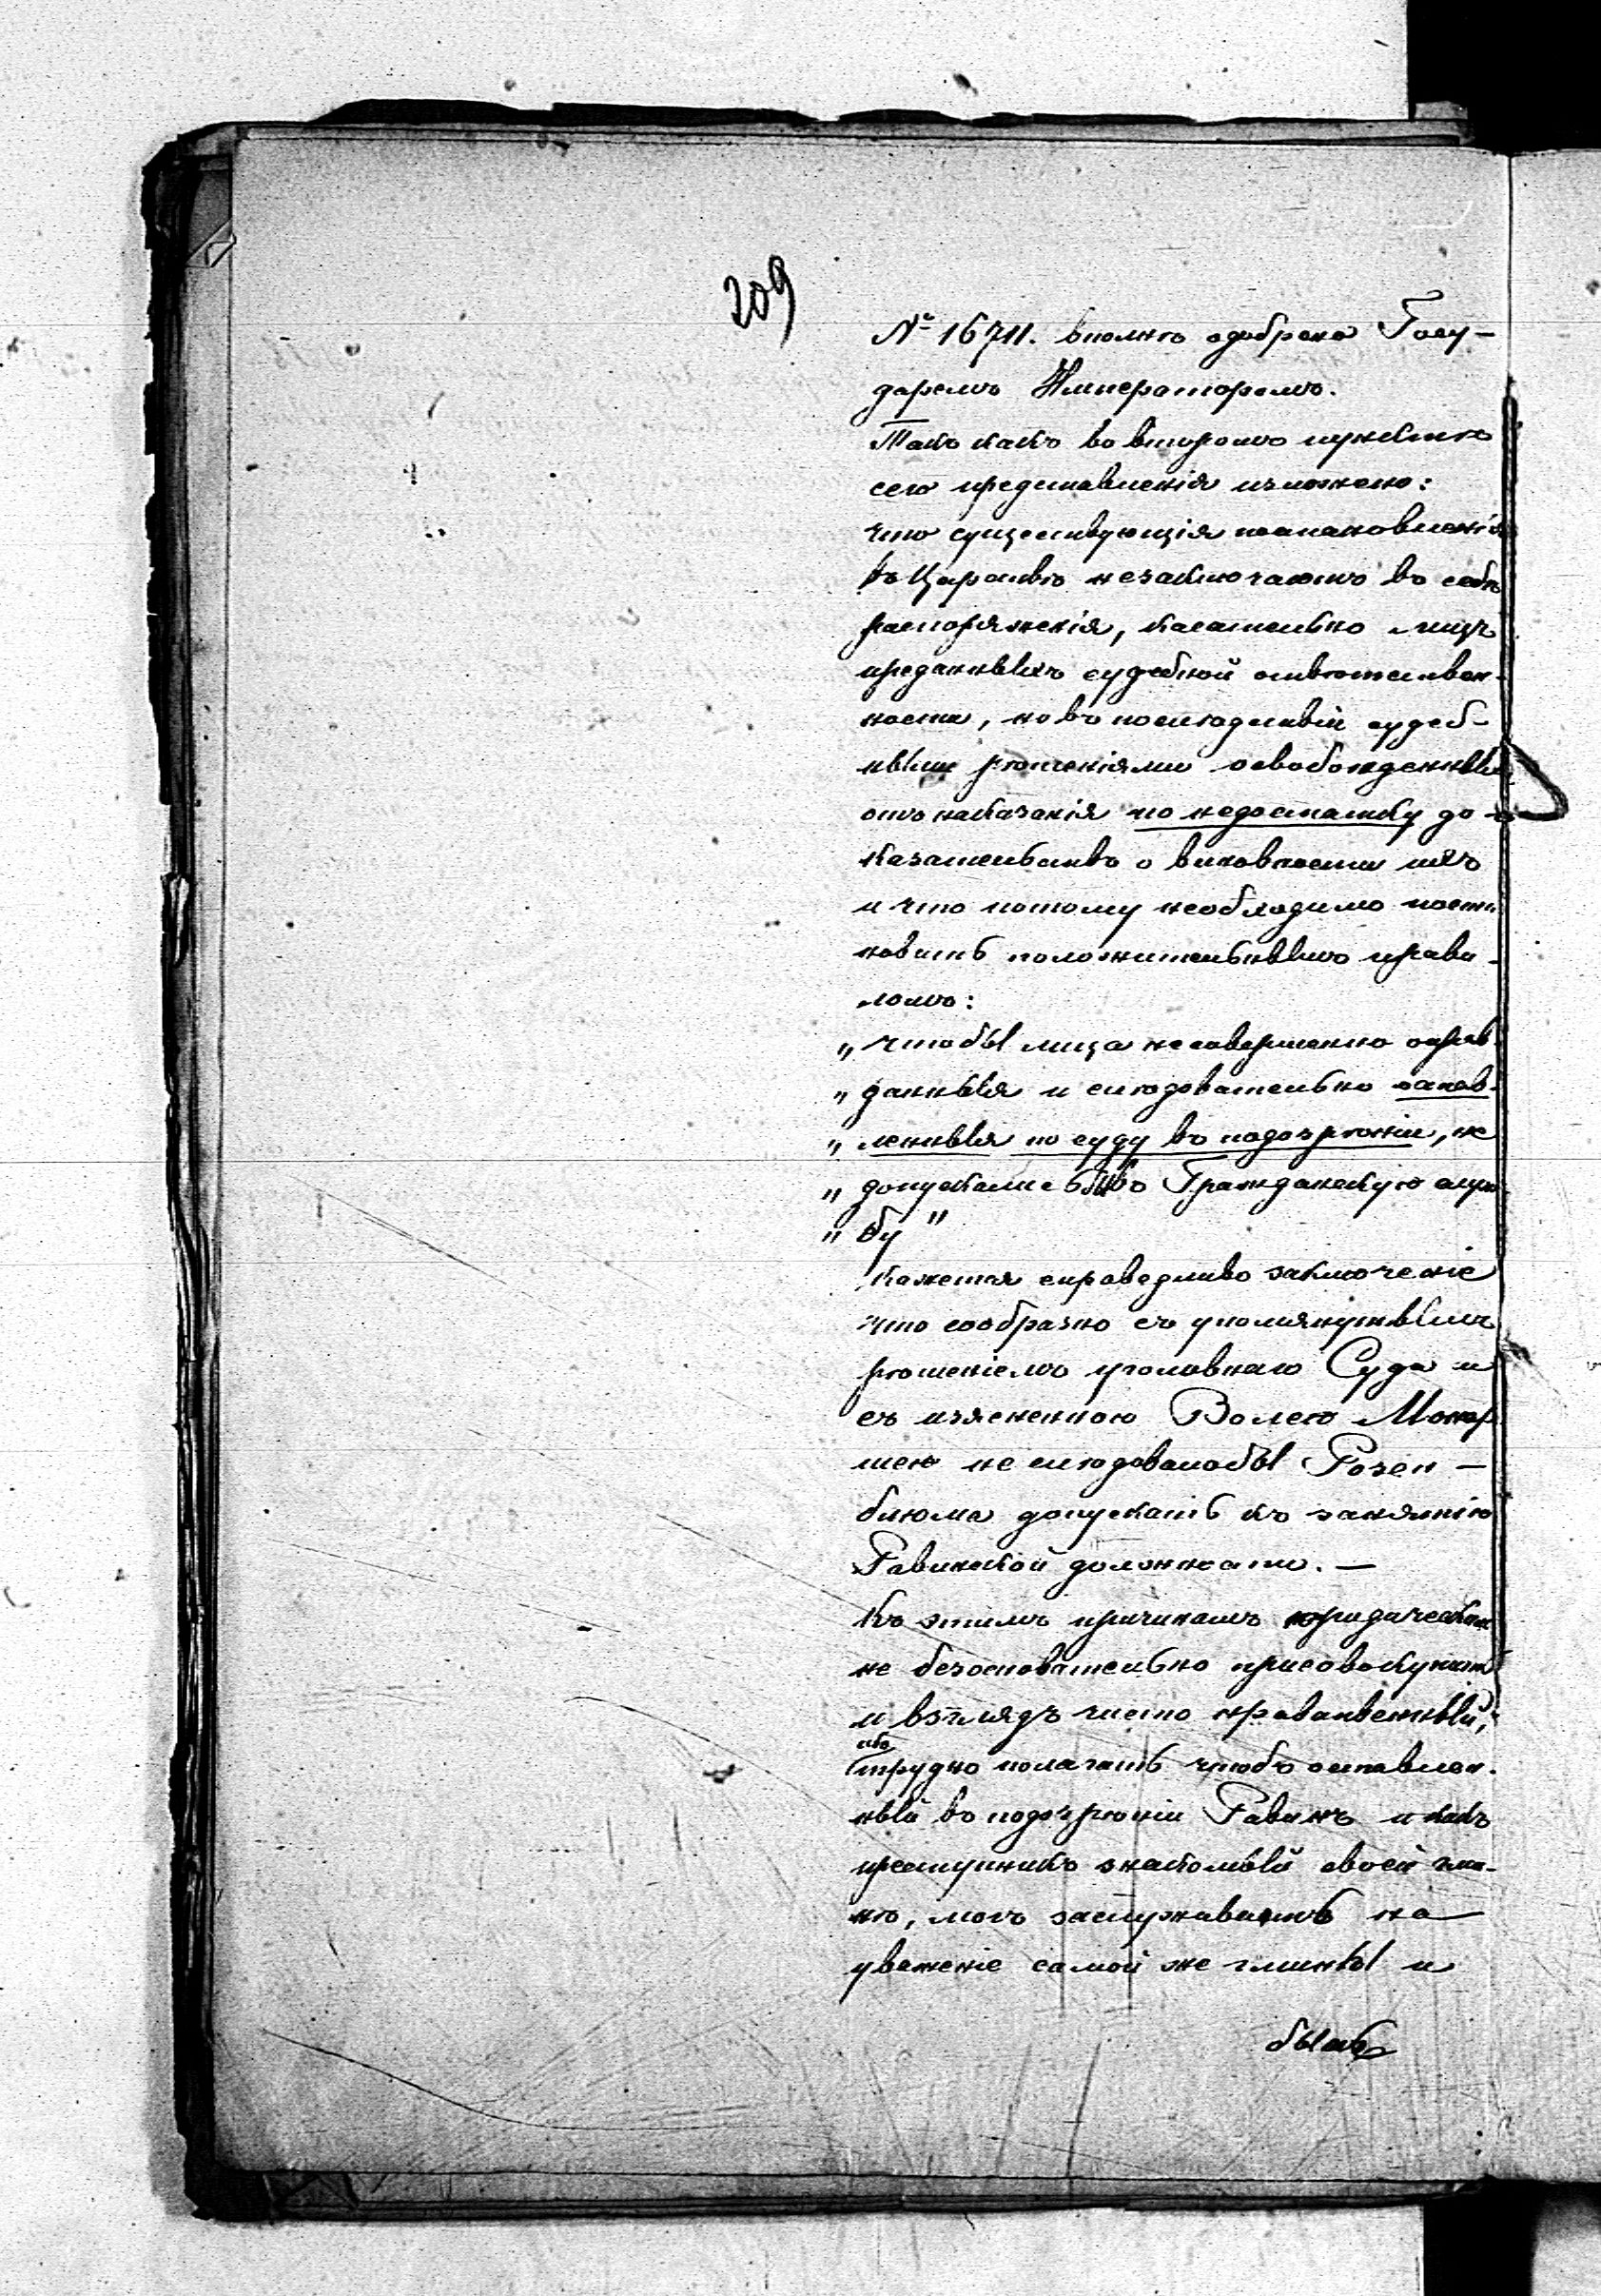 209
№ 16711. вполнѣ одобрена Госу-
даремъ Императоромъ.
Такъ какъ во второмъ пунктѣ
сего представленія изложено:
что существующія постановленія
въ Царствѣ незаключаютъ въ себѣ
распоряженія, касательно лицъ
преданныхъ судебной отвѣтствен-
ности, но въ послѣдствіи судеб-
ными рѣшеніями освобожденныхъ
отъ наказанія по недостатку до-
казательствъ о виновности ихъ
и что потому необходимо поста
новить положительнымъ прави-
ломъ:
„ чтобы лица несовершенно оправ-
„ данныя и слѣдовательно остав-
„ ленныя по суду въ подозрѣніи, не
„ допускались въ Гражданскую служ
„ бу"
Кажется справедливо заключеніе
что сообразно съ упомянутымъ
рѣшеніемъ уголовнаго Суда и
съ изясненною Волею Монар
шею не слѣдовалобы Розен-
блюма допускать къ занятію
Равинской должности. —
Къ этимъ причинамъ юридическимъ
не безосновательно присовокупить
и взглядъ чисто нравственный,
ибо
трудно полагать чтобъ оставлен-
ный въ подозрѣніи Равинъ и какъ
преступникъ знакомый своей гми-
нѣ, могъ заслуживать на
уваженіе самой же гмины и
быть